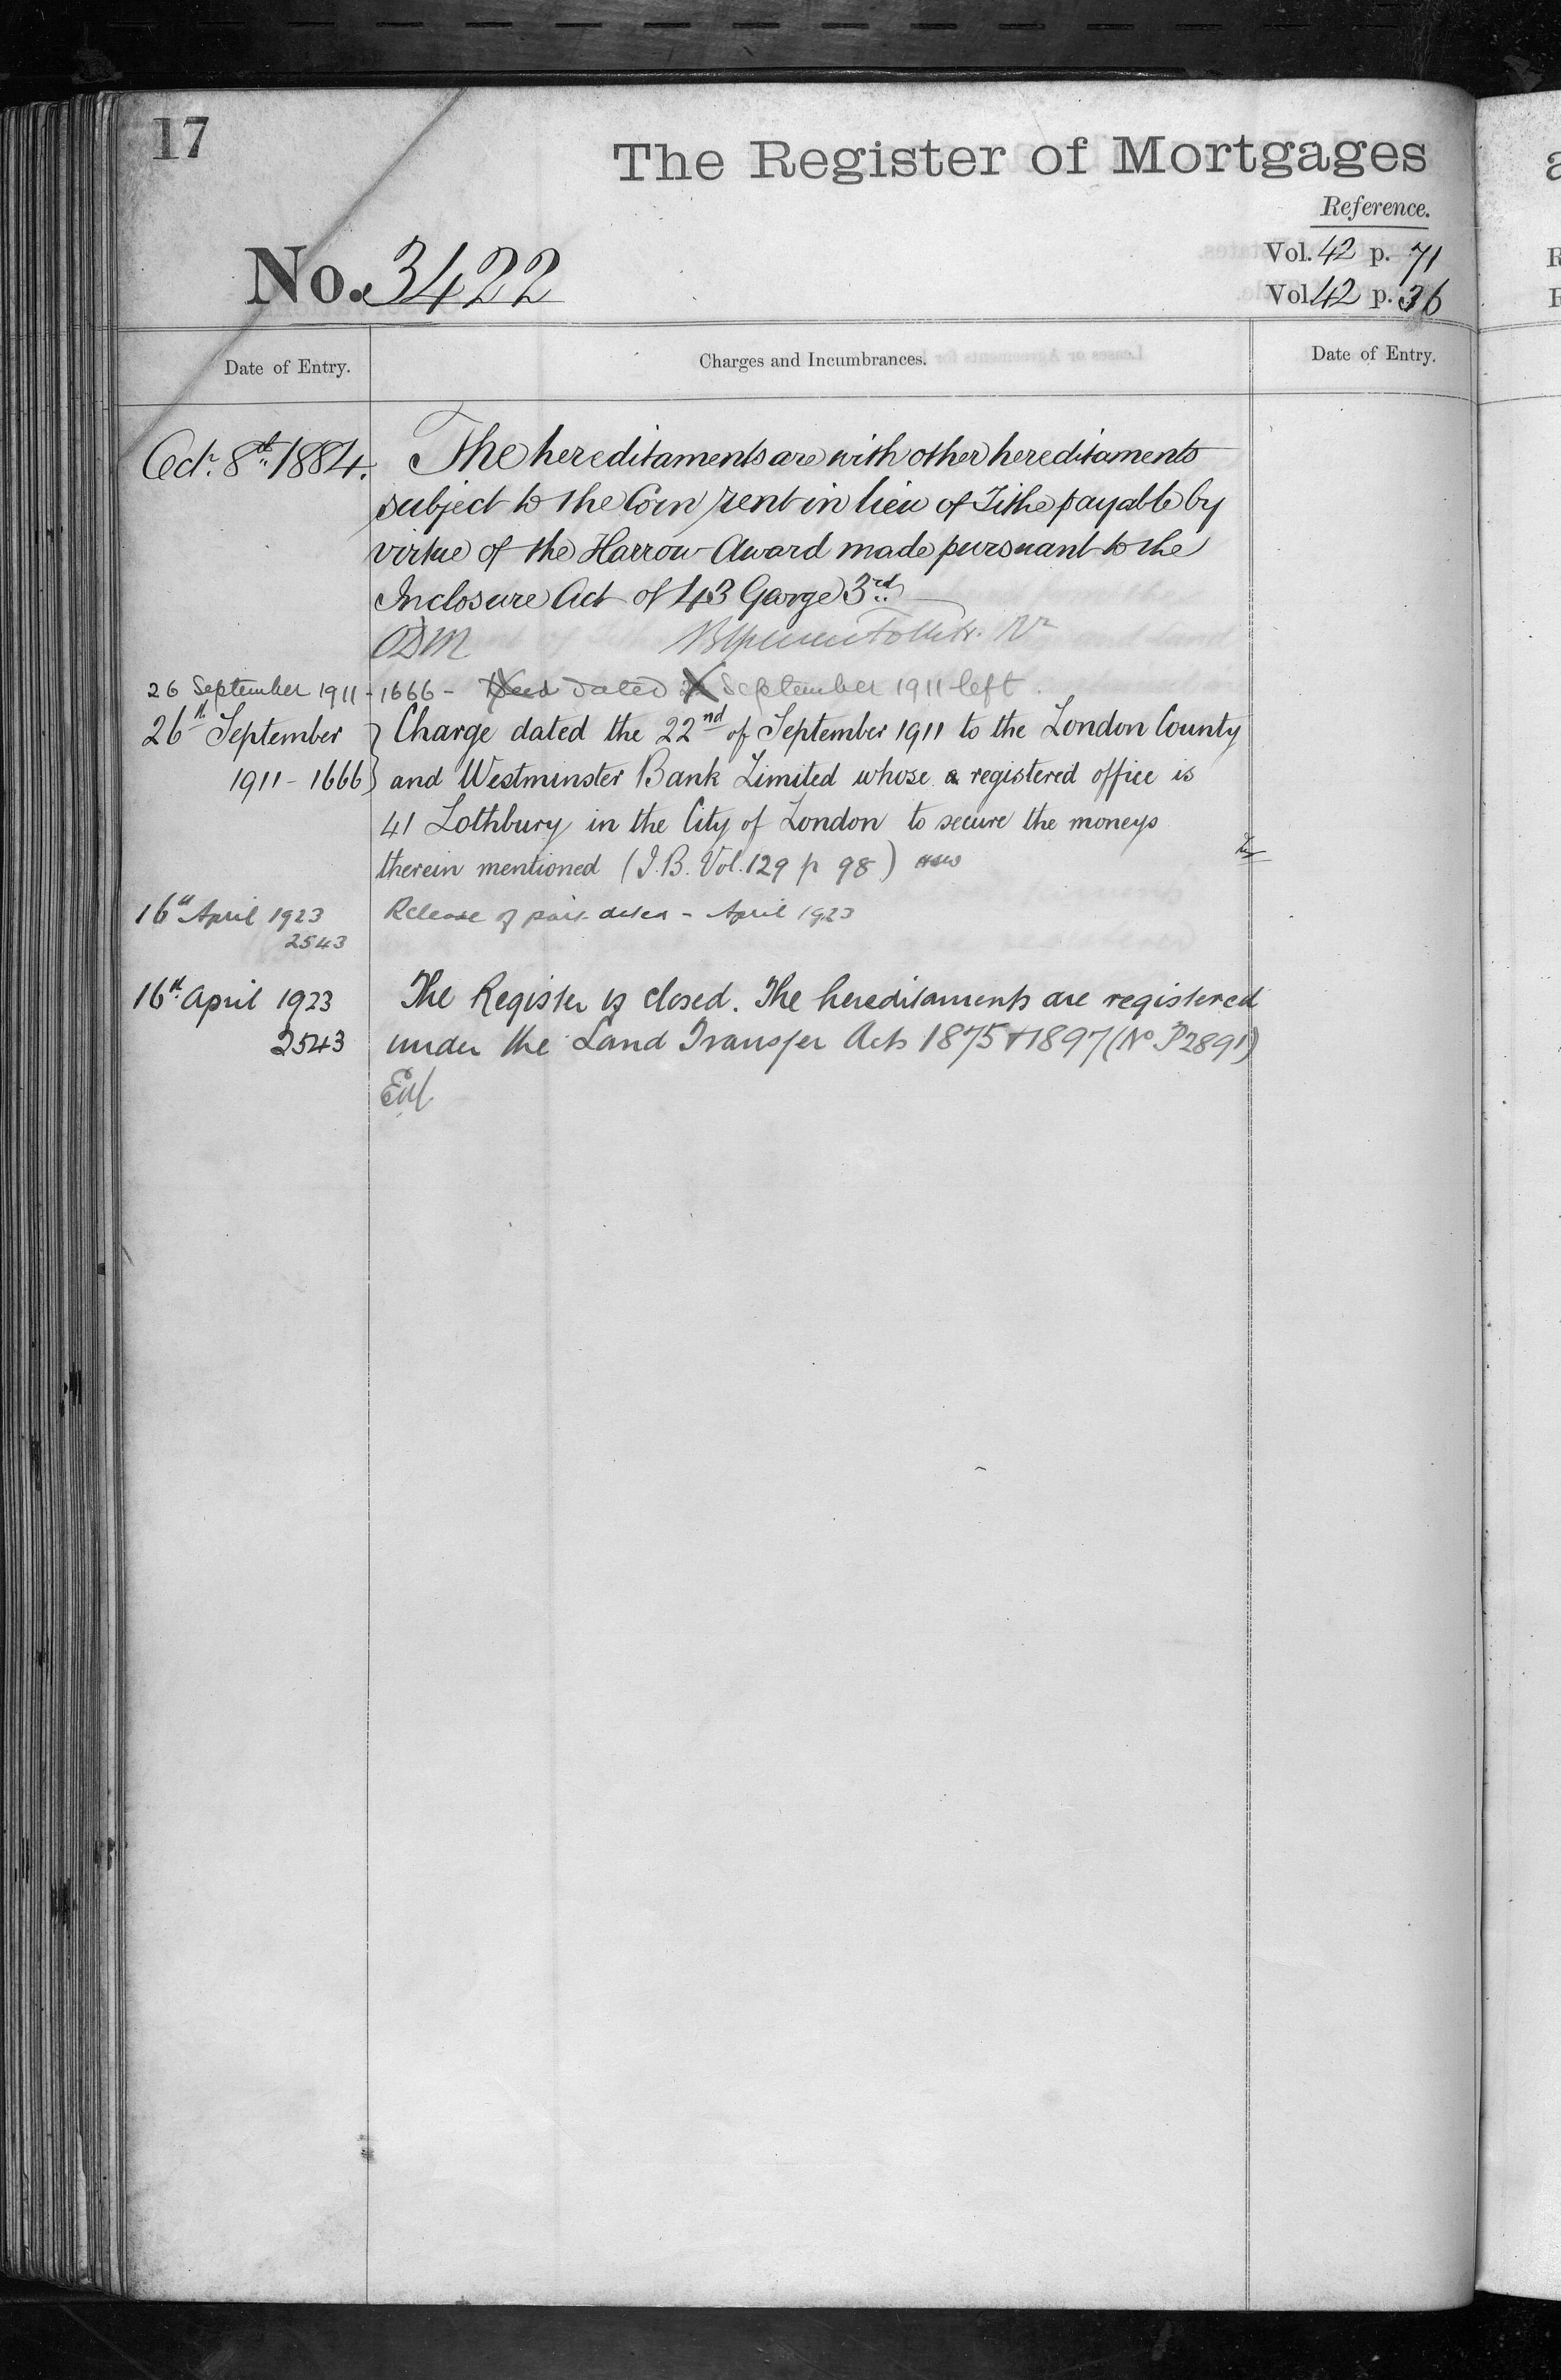 17
The Register of Mortgages
Reference.
Vol. 42 p. 71
Vol 42 p. 36
No. 3422
Date of Entry.
Charges and Incumbrances.
Date of Entry.
Octr. 8th 1884.
The hereditaments are with other hereditaments
subject to the Corn rent in lieu of Tithe payable by
virtue of the Harrow Award made pursuant to the
Inclosure Act of 43 George 3rd
26 September 1911 - 1666 - Deed dated September 1911 left.
26th September
1911 - 1666
Charge dated the 22nd of September 1911 to the London County
and Westminster Bank Limited whose registered office is
41 Lothbury in the City of London to secure the moneys
therein mentioned (I.B. Vol. 129 p 98)
16th April 1923
2543
Release of part dated - April 1923
16th April 1923
2543
The Register is closed. The hereditaments are registered
under the Land Transfer Acts 1875 + 1897 (No P2891)